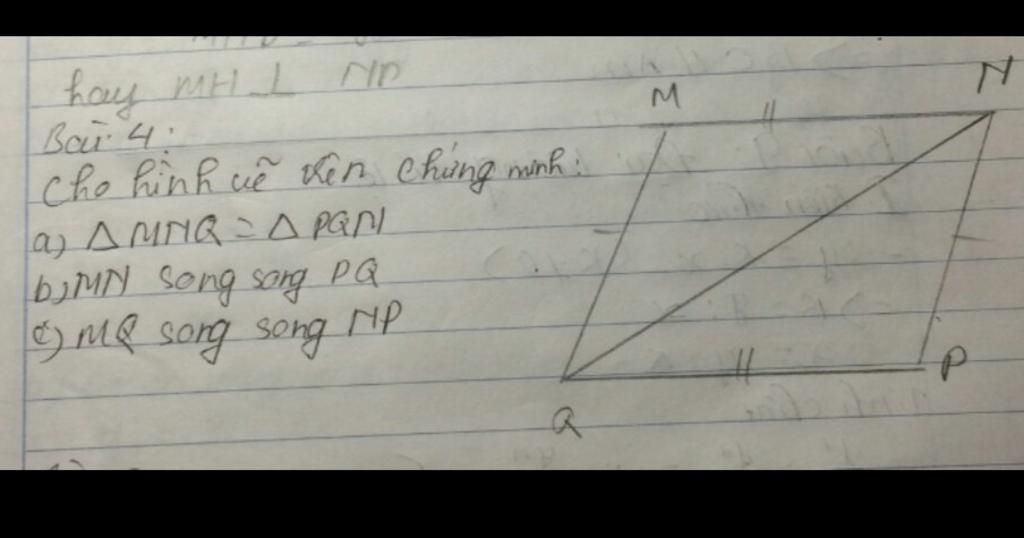 hay MH ⊥ NP
Bài 4:
Cho hình vẽ trên chứng minh:
a) △MNQ = △PQN
b) MN song song PQ
c) MQ song song NP
M
N
Q
P